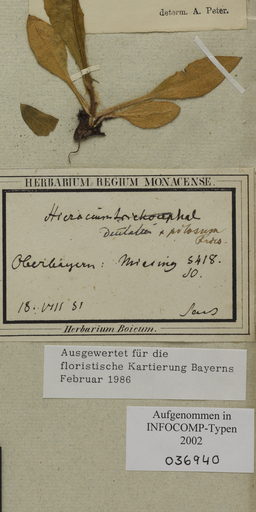 determ. A. Peter.
HERBARIUM REGIUM MONACENSE.
Hieracium
dentatum × pilosum
Oberbayern: Miesing 5418.
SO.
18. VII 51
Herbarium Boicum.
Ausgewertet für die
floristische Kartierung Bayerns
Februar 1986
Aufgenommen in
INFOCOMP-Typen
2002
036940